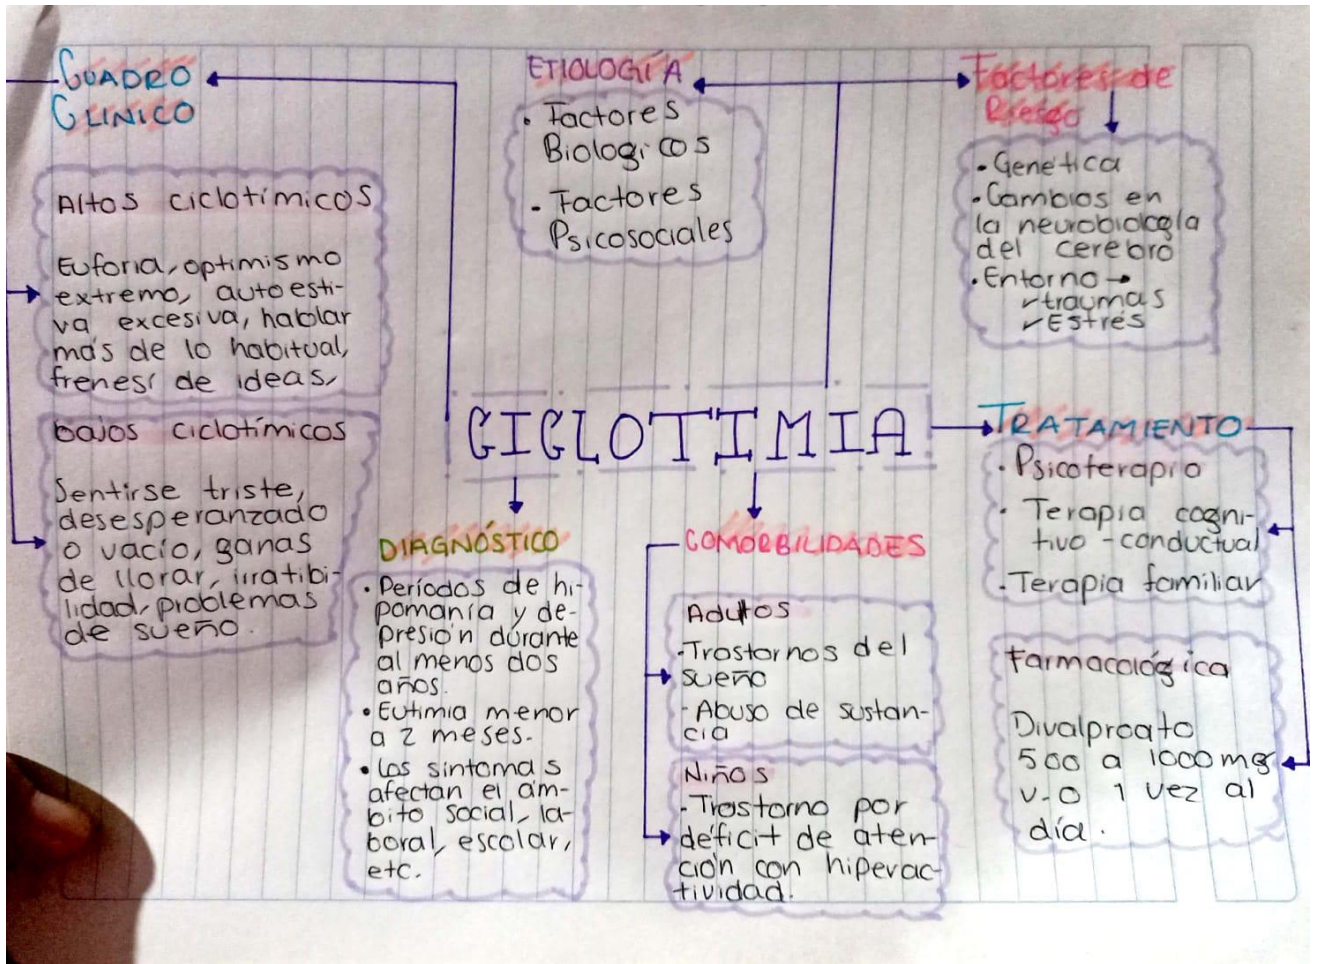 CUADRO
CLINICO
Altos ciclotímicos
Euforia, optimismo
extremo, autoesti-
va excesiva, hablar
más de lo habitual,
frenesí de ideas,
bajos ciclotímicos
Sentirse triste,
desesperanzado
o vacío, ganas
de llorar, irratibi-
lidad, problemas
de sueño.
ETIOLOGÍA
• Factores
Biologicos
- Factores
Psicosociales
Factores de
Riesgo
• Genética
• Cambios en
la neurobiología
del cerebro
• Entorno →
✓ traumas
✓ Estrés
CICLOTIMIA
DIAGNÓSTICO
• Períodos de hi-
pomanía y de-
presión durante
al menos dos
años.
• Eutimia menor
a 2 meses.
• Los sintomas
afectan el ám-
bito social, la-
boral, escolar,
etc.
COMORBILIDADES
Adultos
- Trastornos del
sueño
- Abuso de sustan-
cia
Niños
- Trastorno por
déficit de aten-
ción con hiperac-
tividad.
TRATAMIENTO
• Psicoterapia
• Terapia cogni-
tivo - conductual
- Terapia familiar
Farmacológica
Divalproato
500 a 1000 mg
v.o 1 vez al
día.